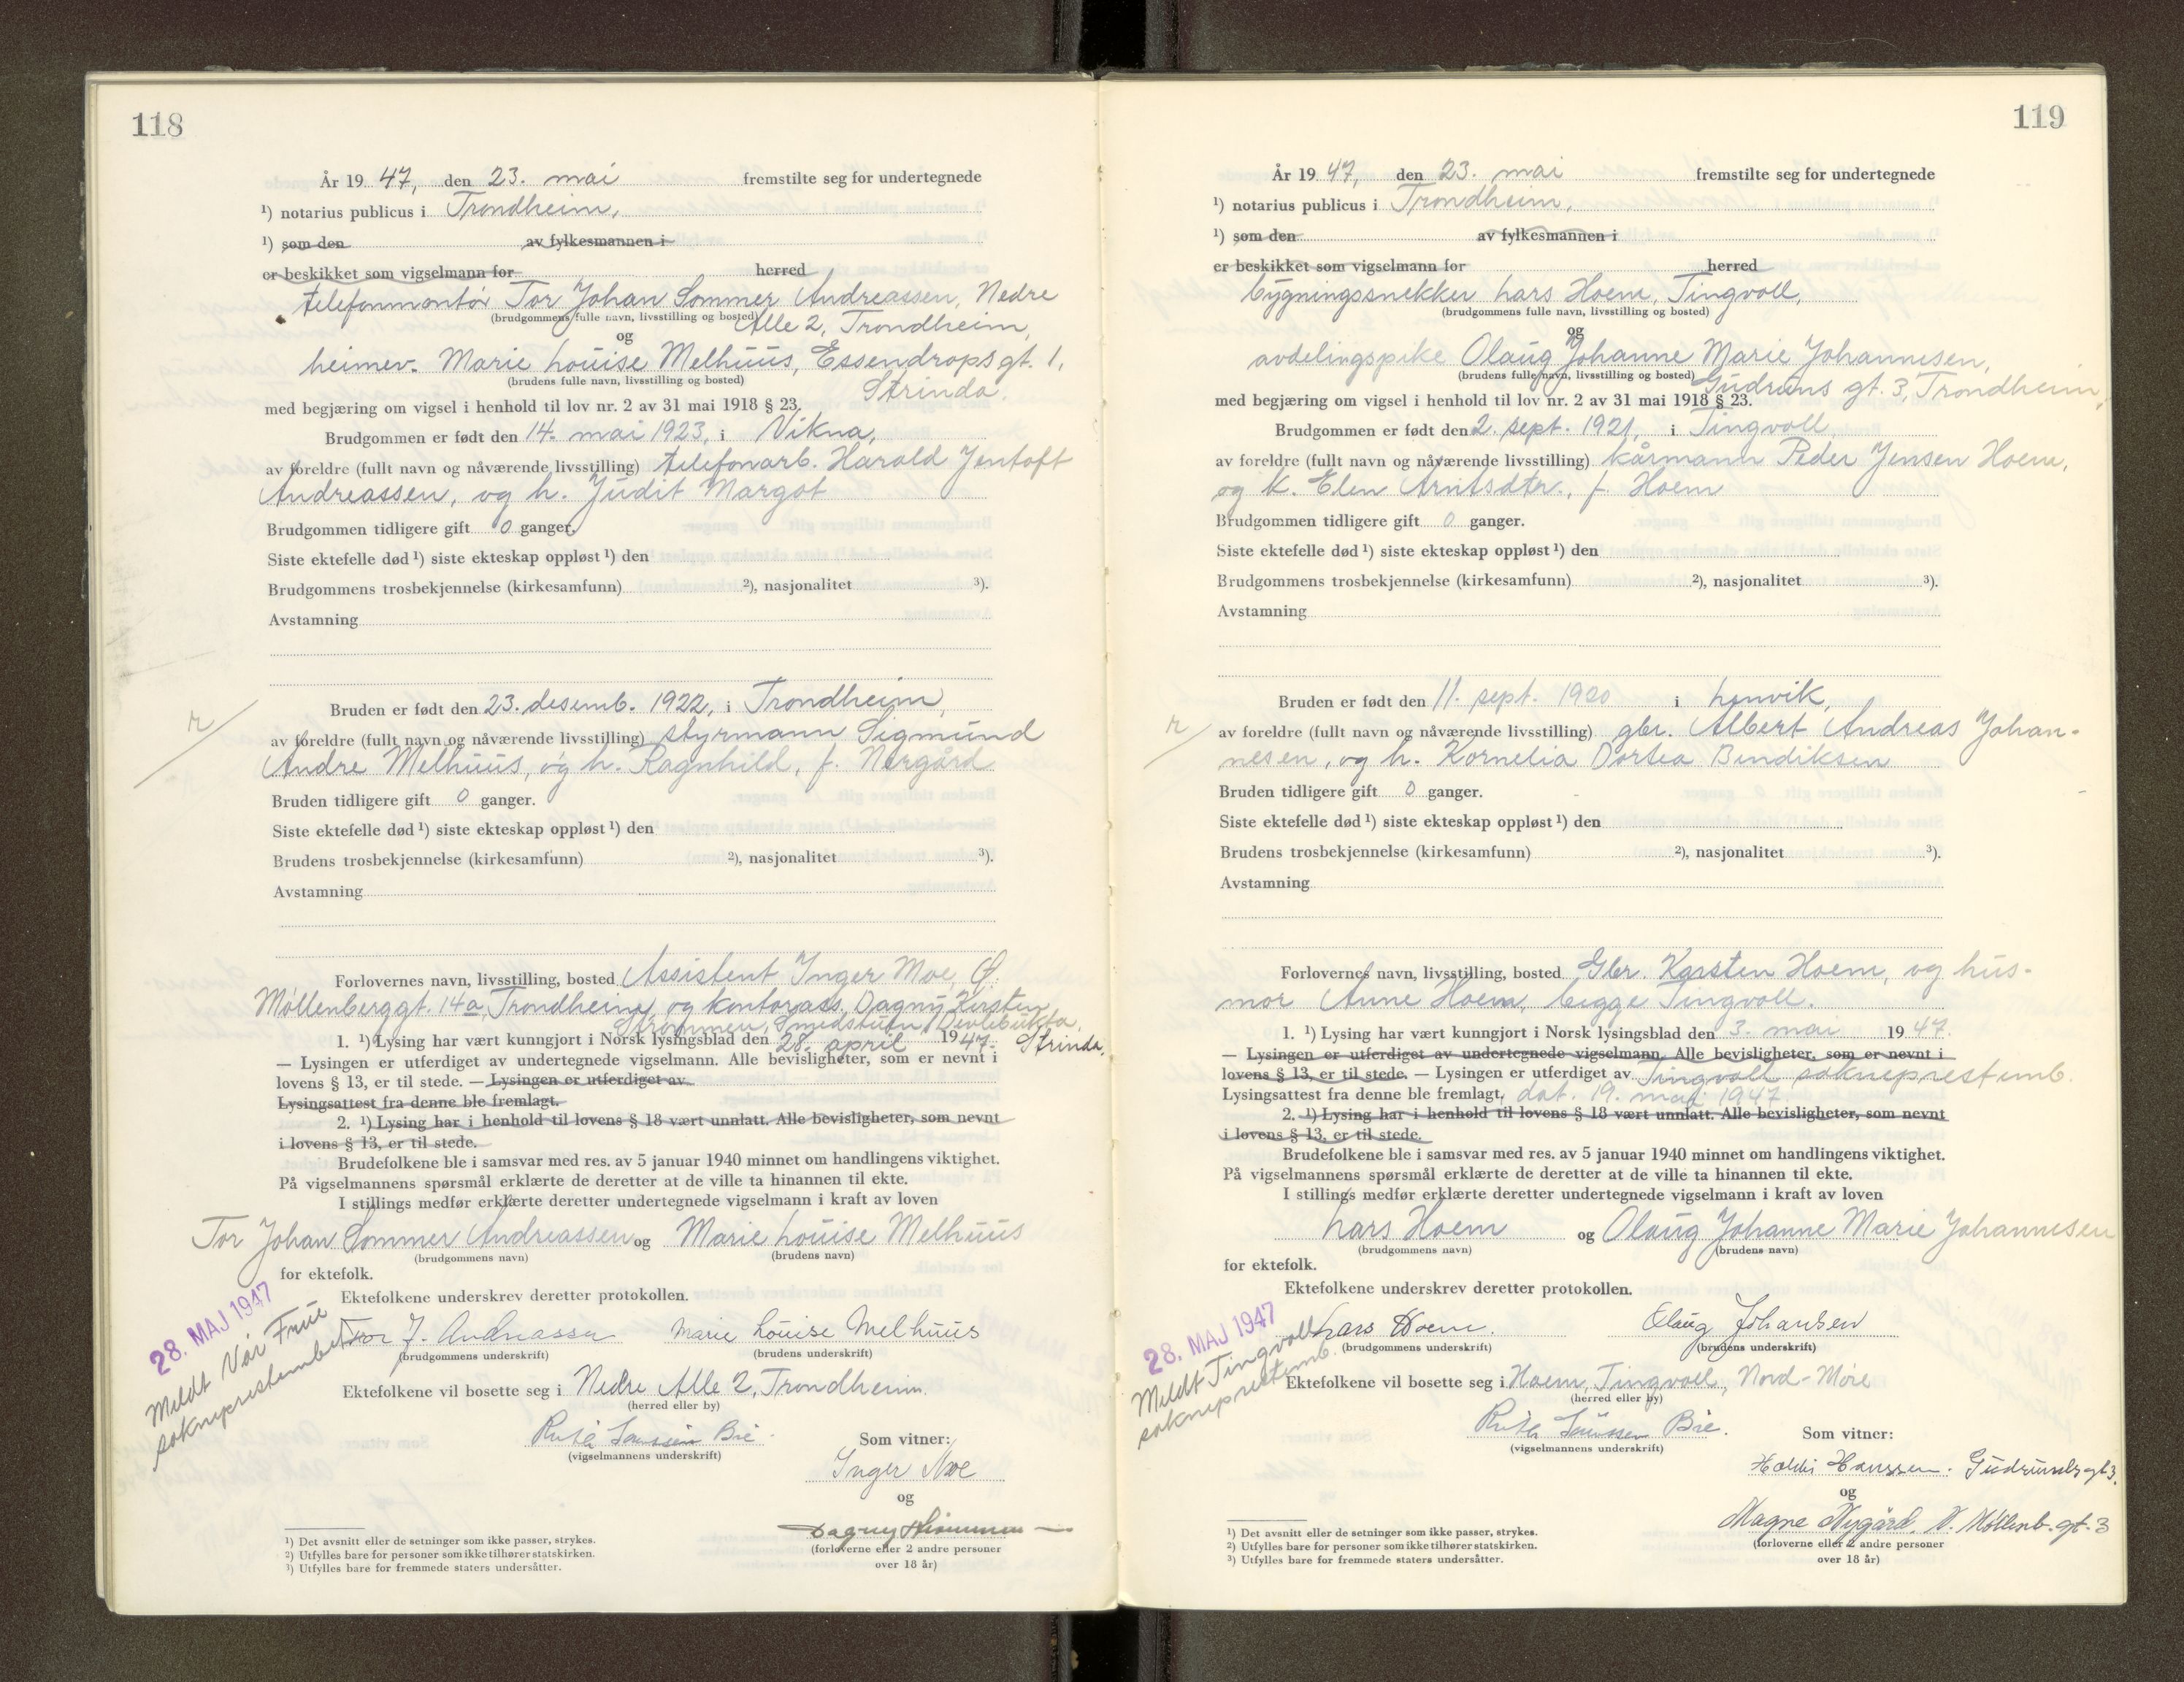 118
År 19 47, den 23. mai fremstilte seg for undertegnede
¹) notarius publicus i Trondheim,
¹) som den av fylkesmannen i
er beskikket som vigselmann for herred
telefonmontør Tor Johan Sommer Andreassen, Nedre
(brudgommens fulle navn, livsstilling og bosted) Alle 2, Trondheim,
og
heimev. Marie Louise Melhuus, Essendropsgt. 1,
(brudens fulle navn, livsstilling og bosted) Strinda.
med begjæring om vigsel i henhold til lov nr. 2 av 31 mai 1918 § 23.
Brudgommen er født den 14. mai 1923, i Vikna,
av foreldre (fullt navn og nåværende livsstilling) telefonarb. Harald Jentoft
Andreassen, og h. Judit Margot
Brudgommen tidligere gift 0 ganger.
Siste ektefelle død ¹) siste ekteskap oppløst ¹) den
Brudgommens trosbekjennelse (kirkesamfunn) ²), nasjonalitet ³).
Avstamning
Bruden er født den 23. desemb. 1922, i Trondheim,
av foreldre (fullt navn og nåværende livsstilling) styrmann Sigmund
Andre Melhuus, og h. Ragnhild, f. Nergård
Bruden tidligere gift 0 ganger.
Siste ektefelle død ¹) siste ekteskap oppløst ¹) den
Brudens trosbekjennelse (kirkesamfunn) ²), nasjonalitet ³).
Avstamning
Forlovernes navn, livsstilling, bosted Assistent Inger Moe, Ø.
Møllenberggt. 14a, Trondheim, og kontorass. Dagny Kirsten
Strømmen, Smedstuen, Devlebukta,
1. ¹) Lysing har vært kunngjort i Norsk lysingsblad den 28. april 1947. Strinda.
— Lysingen er utferdiget av undertegnede vigselmann. Alle bevisligheter, som er nevnt i
lovens § 13, er til stede. — Lysingen er utferdiget av
Lysingsattest fra denne ble fremlagt.
2. ¹) Lysing har i henhold til lovens § 18 vært unnlatt. Alle bevisligheter, som nevnt
i lovens § 13, er til stede.
Brudefolkene ble i samsvar med res. av 5 januar 1940 minnet om handlingens viktighet.
På vigselmannens spørsmål erklærte de deretter at de ville ta hinannen til ekte.
I stillings medfør erklærte deretter undertegnede vigselmann i kraft av loven
Tor Johan Sommer Andreassen og Marie Louise Melhuus
(brudgommens navn) (brudens navn)
for ektefolk.
Ektefolkene underskrev deretter protokollen.
28. MAJ 1947
Meldt Vår Frue
sokneprestembet
Tor J. Andreassen Marie Louise Melhuus
(brudgommens underskrift) (brudens underskrift)
Ektefolkene vil bosette seg i Nedre Alle 2, Trondheim.
(herred eller by)
Ruth Laussen Bie. Som vitner:
(vigselmannens underskrift)
Inger Moe
og
Dagny Strømmen
(forloverne eller 2 andre personer
over 18 år)
¹) Det avsnitt eller de setninger som ikke passer, strykes.
²) Utfylles bare for personer som ikke tilhører statskirken.
³) Utfylles bare for fremmede staters undersåtter.
119
År 19 47, den 23. mai fremstilte seg for undertegnede
¹) notarius publicus i Trondheim,
¹) som den av fylkesmannen i
er beskikket som vigselmann for herred
bygningssnekker Lars Hoem, Tingvoll,
(brudgommens fulle navn, livsstilling og bosted)
og
avdelingspike Olaug Johanne Marie Johannesen,
(brudens fulle navn, livsstilling og bosted) Gudruns gt. 3, Trondheim,
med begjæring om vigsel i henhold til lov nr. 2 av 31 mai 1918 § 23.
Brudgommen er født den 2. sept. 1921, i Tingvoll,
av foreldre (fullt navn og nåværende livsstilling) kårmann Peder Jensen Hoem,
og k. Elen Arntsdtr., f. Hoem
Brudgommen tidligere gift 0 ganger.
Siste ektefelle død ¹) siste ekteskap oppløst ¹) den
Brudgommens trosbekjennelse (kirkesamfunn) ²), nasjonalitet ³).
Avstamning
Bruden er født den 11. sept. 1920 i Lenvik,
av foreldre (fullt navn og nåværende livsstilling) gbr. Albert Andreas Johan-
nesen, og h. Kornelia Dortea Bendiksen
Bruden tidligere gift 0 ganger.
Siste ektefelle død ¹) siste ekteskap oppløst ¹) den
Brudens trosbekjennelse (kirkesamfunn) ²), nasjonalitet ³).
Avstamning
Forlovernes navn, livsstilling, bosted Gbr. Karsten Hoem, og hus-
mor Anne Hoem, begge Tingvoll.
1. ¹) Lysing har vært kunngjort i Norsk lysingsblad den 3. mai 1947.
— Lysingen er utferdiget av undertegnede vigselmann. Alle bevisligheter, som er nevnt i
lovens § 13, er til stede. — Lysingen er utferdiget av Tingvoll sokneprestemb.
Lysingsattest fra denne ble fremlagt, dat. 19. mai 1947.
2. ¹) Lysing har i henhold til lovens § 18 vært unnlatt. Alle bevisligheter, som nevnt
i lovens § 13, er til stede.
Brudefolkene ble i samsvar med res. av 5 januar 1940 minnet om handlingens viktighet.
På vigselmannens spørsmål erklærte de deretter at de ville ta hinannen til ekte.
I stillings medfør erklærte deretter undertegnede vigselmann i kraft av loven
Lars Hoem og Olaug Johanne Marie Johannesen
(brudgommens navn) (brudens navn)
for ektefolk.
Ektefolkene underskrev deretter protokollen.
28. MAJ 1947
Meldt Tingvoll
sokneprestemb.
Lars Hoem. Olaug Johansen
(brudgommens underskrift) (brudens underskrift)
Ektefolkene vil bosette seg i Hoem, Tingvoll, Nord-Møre
(herred eller by)
Ruth Laussen Bie.
(vigselmannens underskrift) Som vitner:
Hanssen. Gudrunsgt 3.
og
Magne Nygård. N. Møllenb. gt. 3
(forloverne eller 2 andre personer
over 18 år)
¹) Det avsnitt eller de setninger som ikke passer, strykes.
²) Utfylles bare for personer som ikke tilhører statskirken.
³) Utfylles bare for fremmede staters undersåtter.